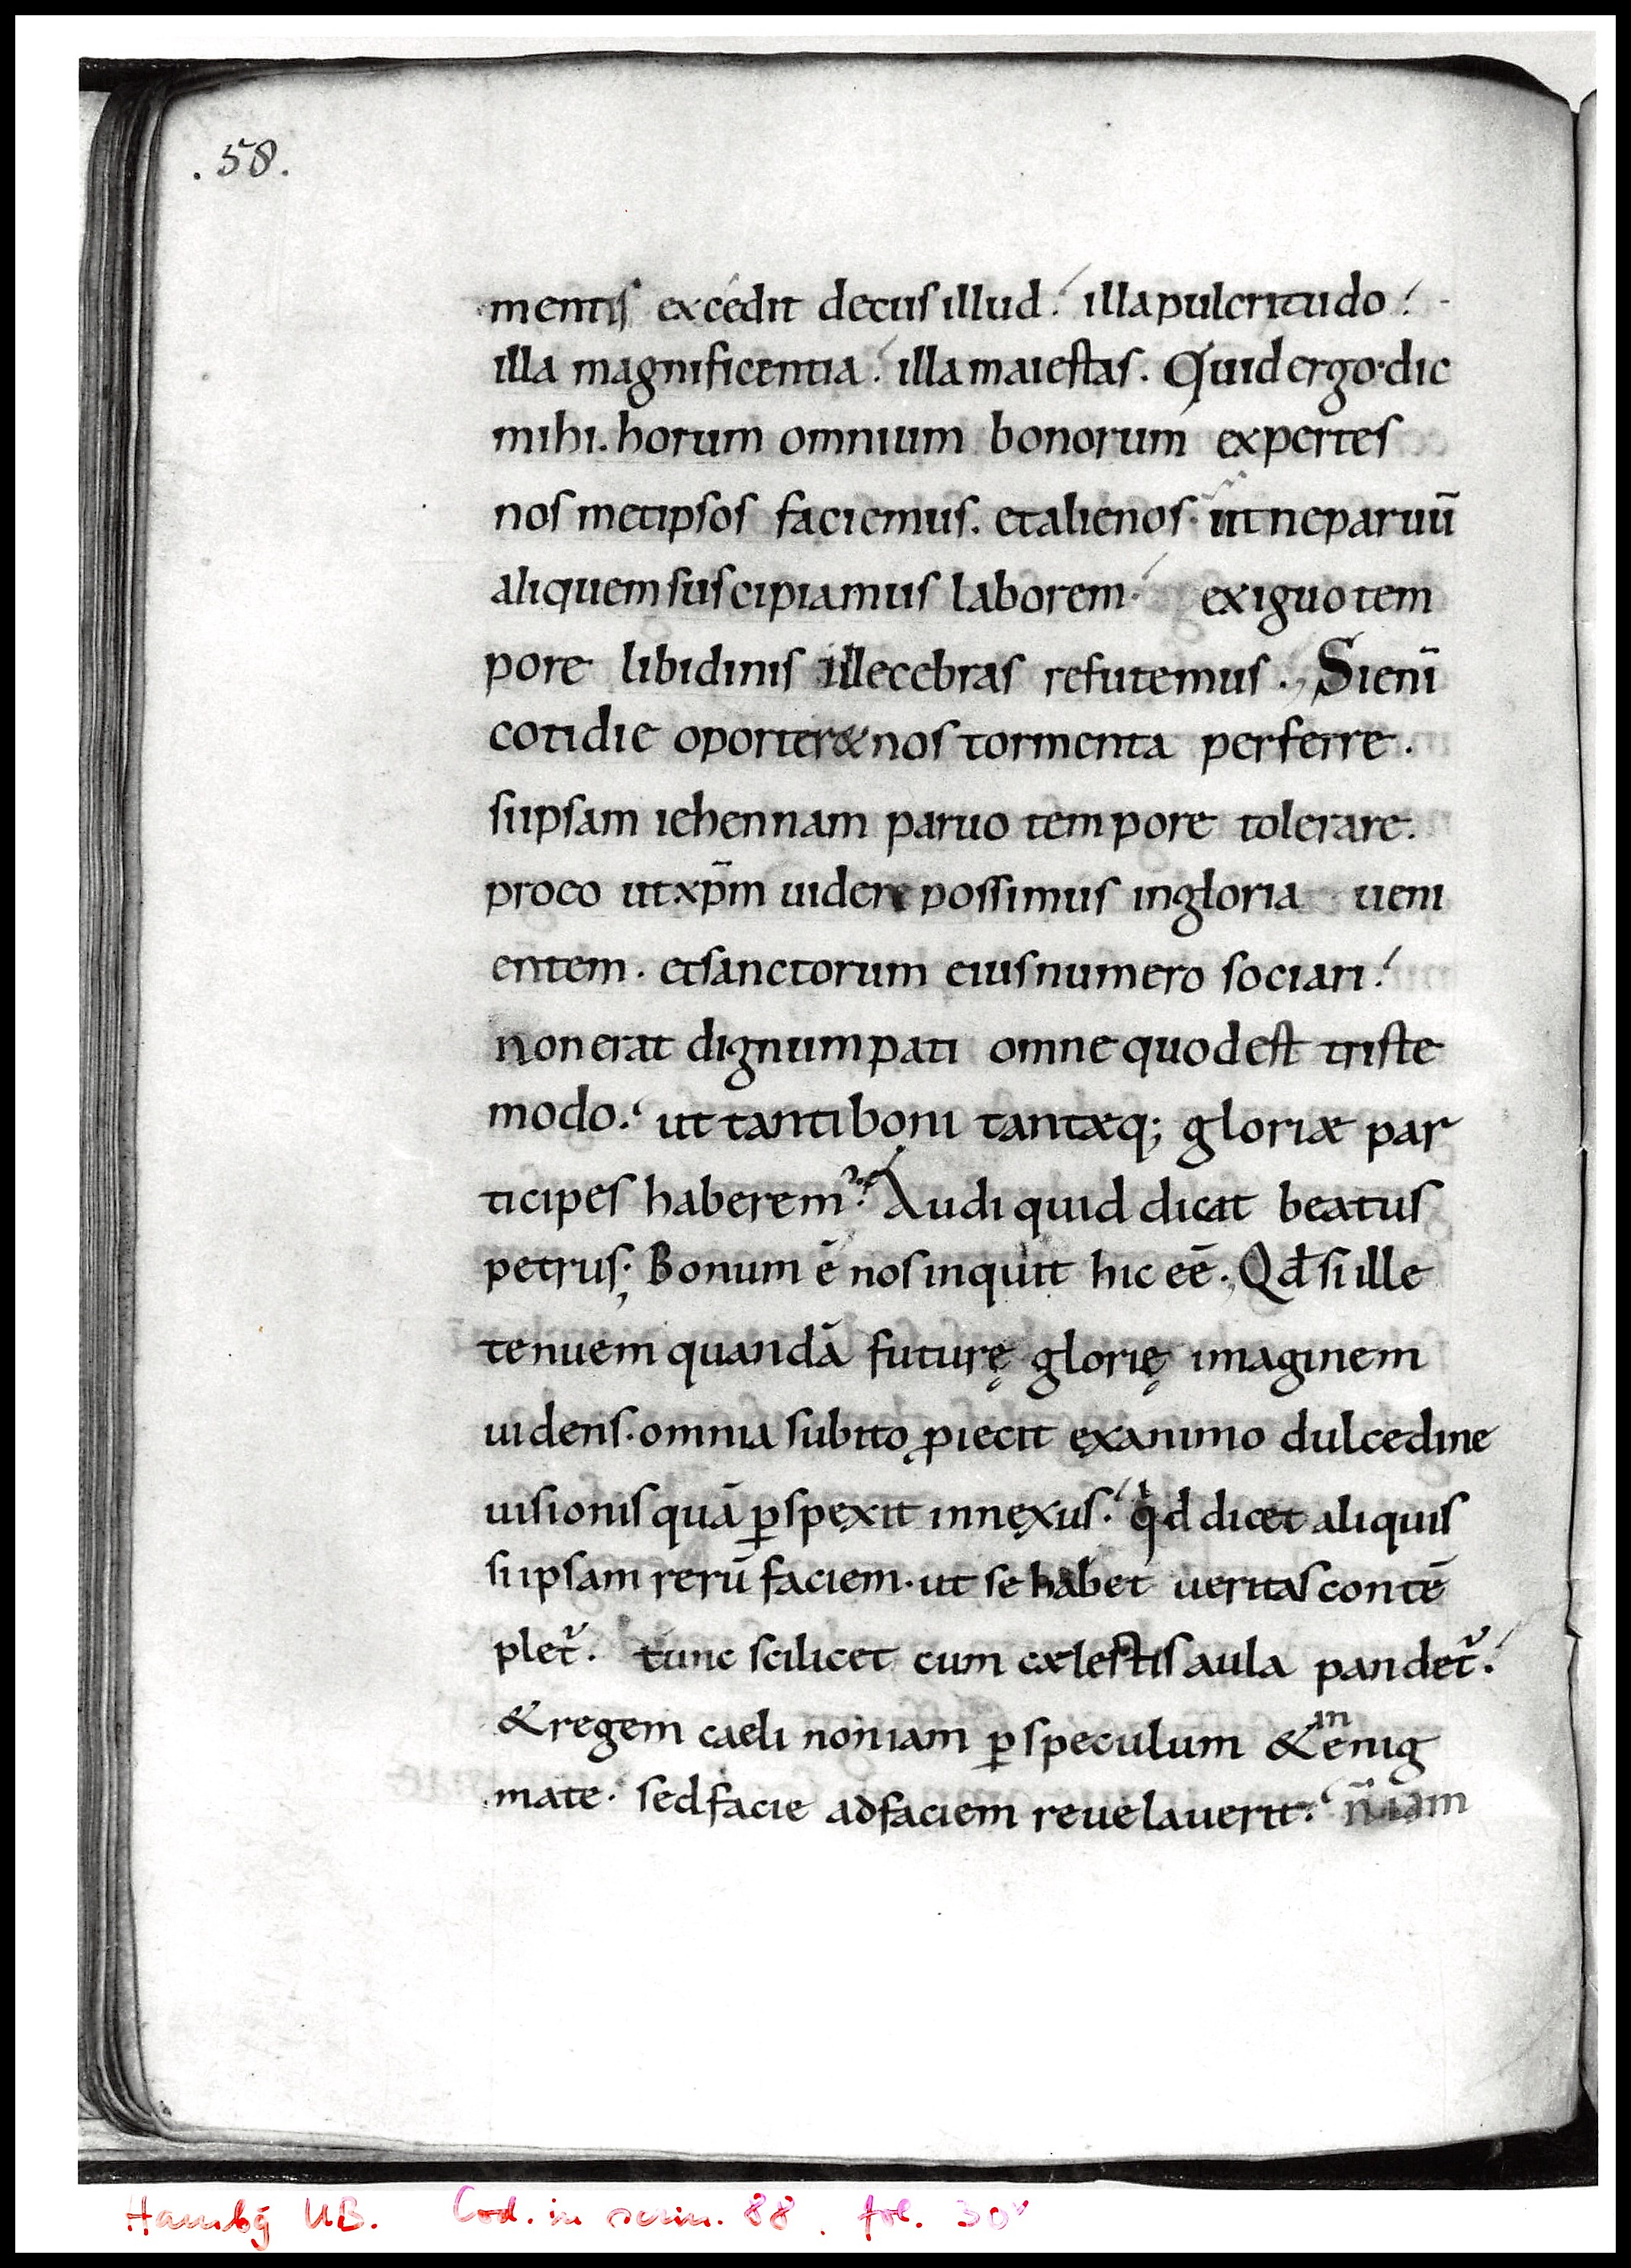 .58.
mentis excedit decus illud. illa pulcritudo.
illa magnificentia. illa maiestas. Quid ergo·dic
mihi. horum omnium bonorum expertes
nos metipsos faciemus. et alienos· ut ne paruū
aliquem suscipiamus laborem· exiguo tem
pore libidinis illecebras refutemus. Si enī
cotidie oporter& nos tormenta perferre.
si ipsam iehennam paruo tempore tolerare.
pro eo ut xp̄m uidere possimus in gloria ueni
entem. et sanctorum eius numero sociari.
non erat dignum pati omne quod est triste
modo. ut tanti boni tantæq; gloriæ par
ticipes haberem᷒. Audi quid dicat beatus
petrus; Bonum ē nos inquit hic eē. Qđ si ille
tenuem quandā futurę glorię imaginem
uidens. omnia subito ꝓiecit ex animo dulcedine
uisionis quā ꝑspexit innexus. qd dicet aliquis
si ipsam rerū faciem. ut se habet ueritas contē
plet᷑. tunc scilicet cum cælestis aula pandet᷑.
& regem caeli non iam ꝑ speculum & in enig
mate· sed facie ad faciem reuelauerit. n̄ iam
Hambg UB. Cod. in scrin. 88. fol. 30v